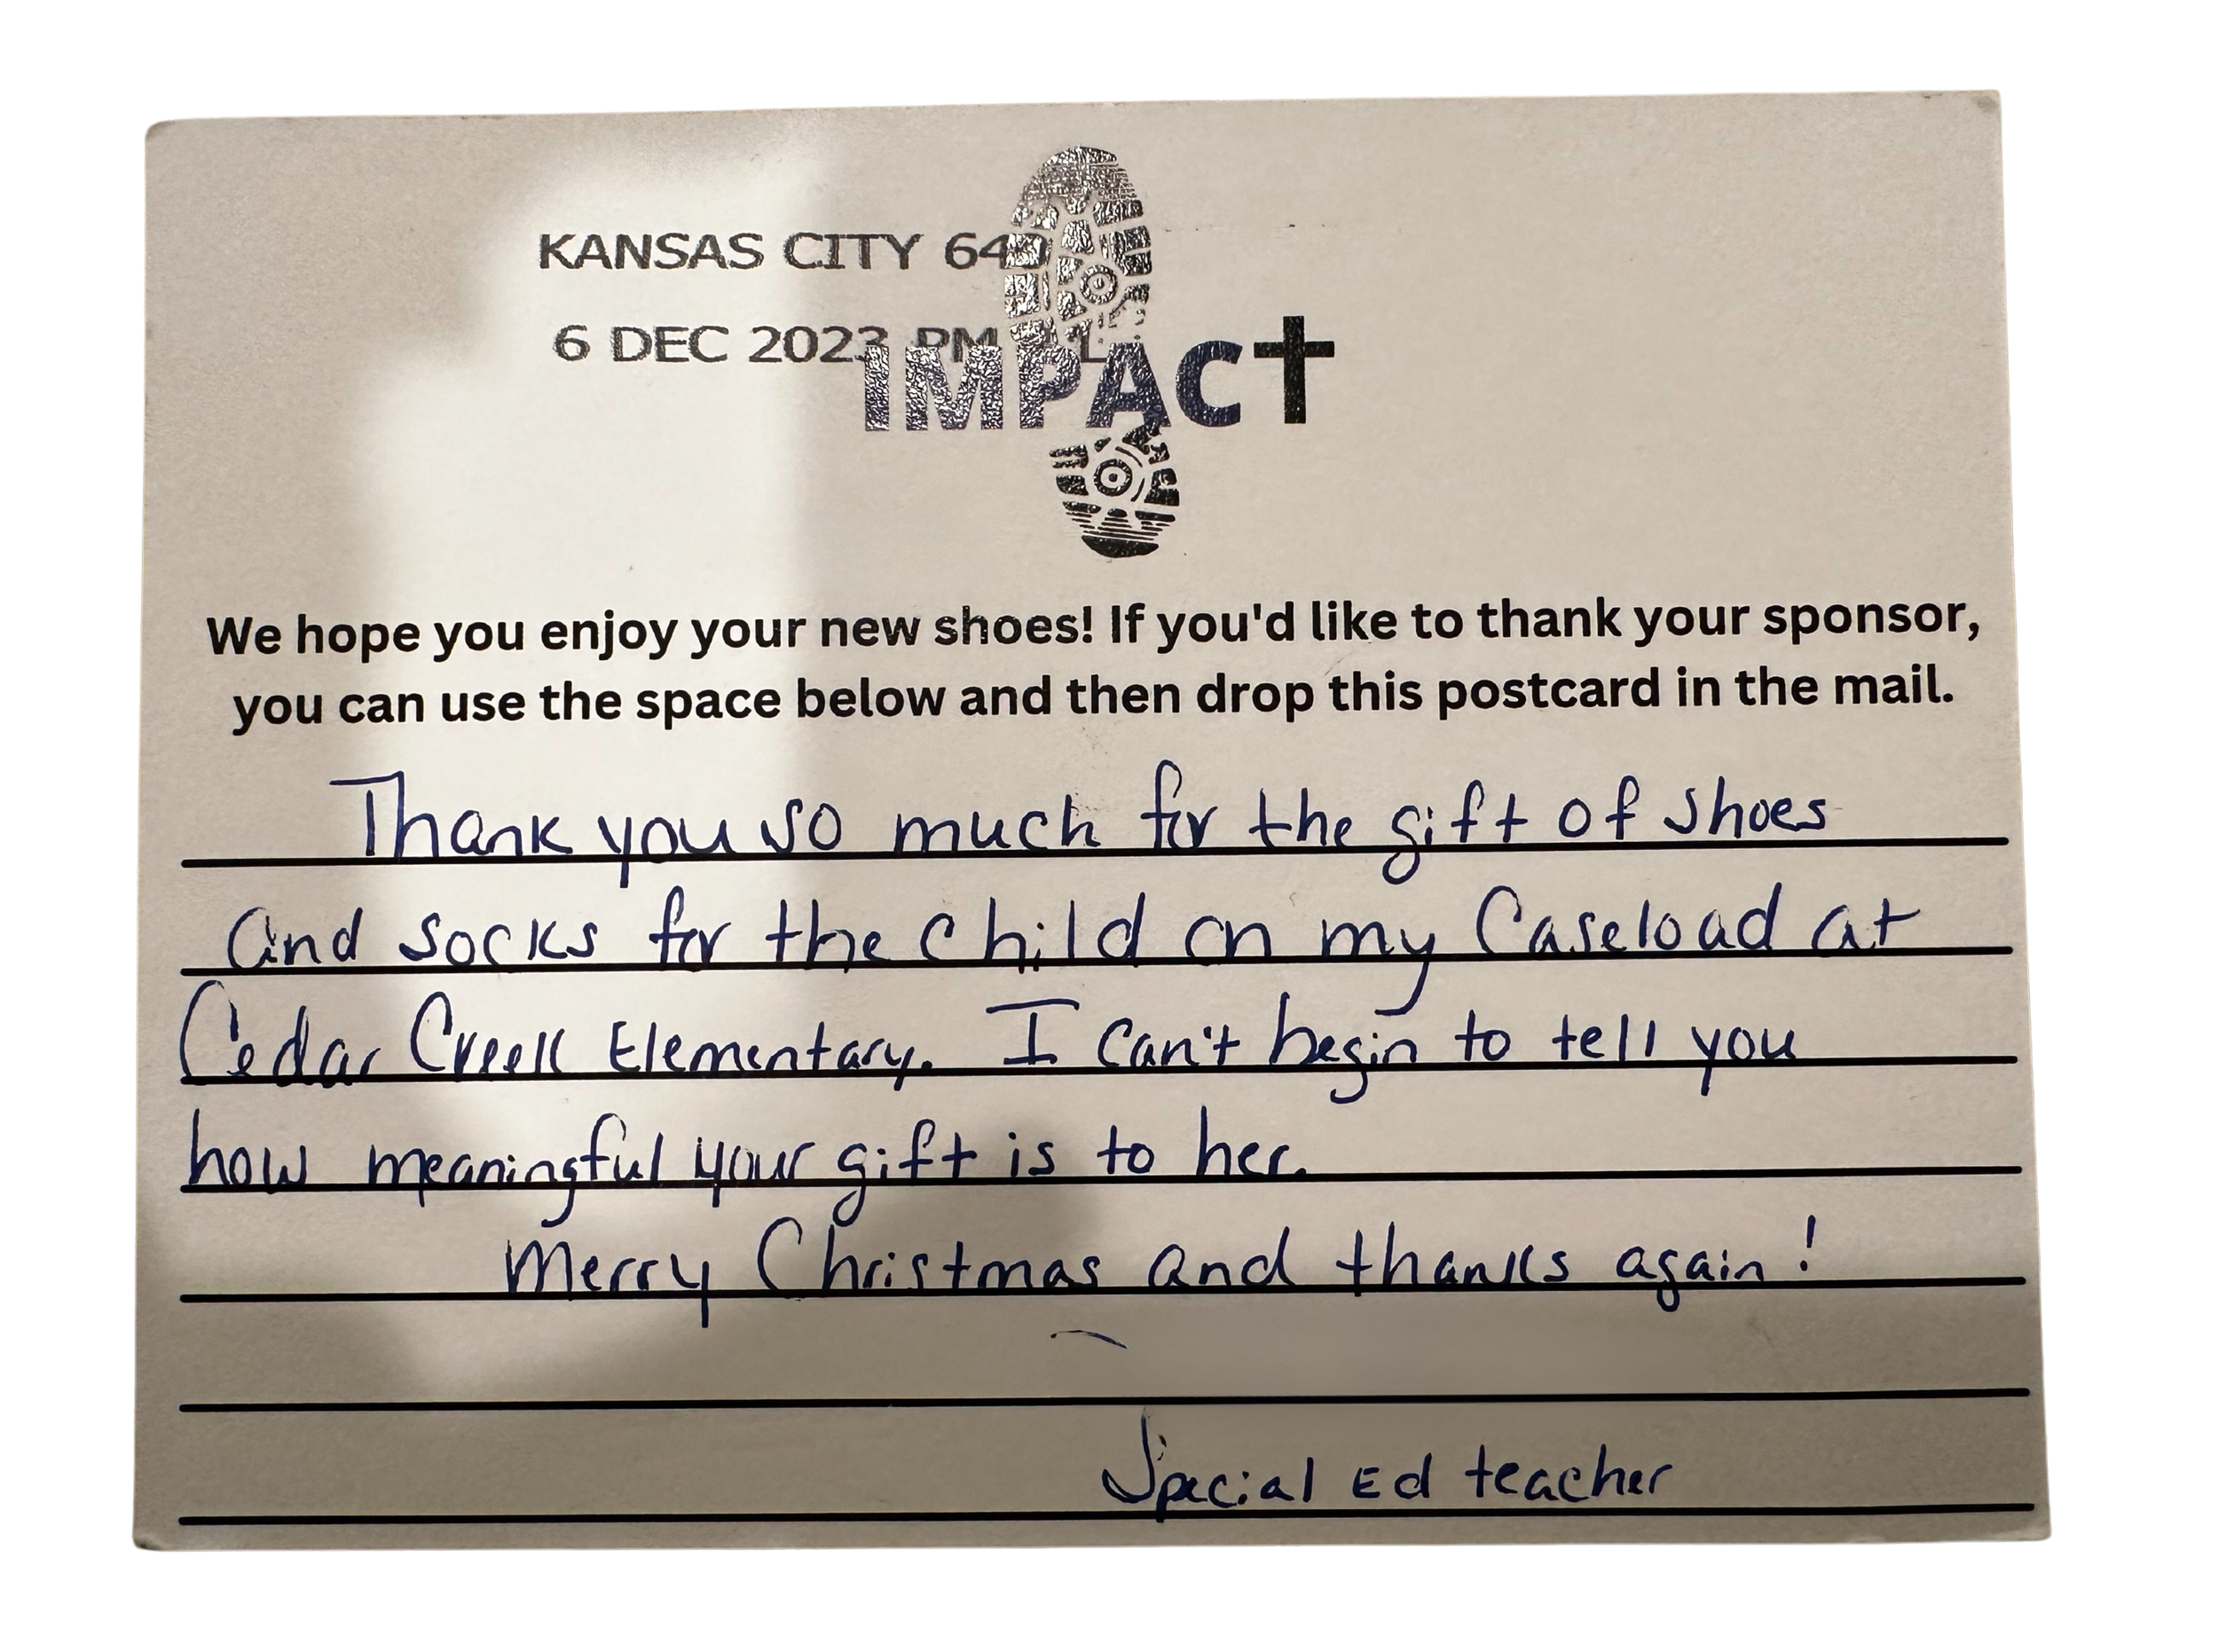 KANSAS CITY
6 DEC 2023 PM
IMPACT
We hope you enjoy your new shoes! If you'd like to thank your sponsor,
you can use the space below and then drop this postcard in the mail.
Thank you so much for the gift of shoes
and socks for the child on my Caseload at
Cedar Creek Elementary. I can't begin to tell you
how meaningful your gift is to her.
Merry Christmas and thanks again!
Special Ed teacher